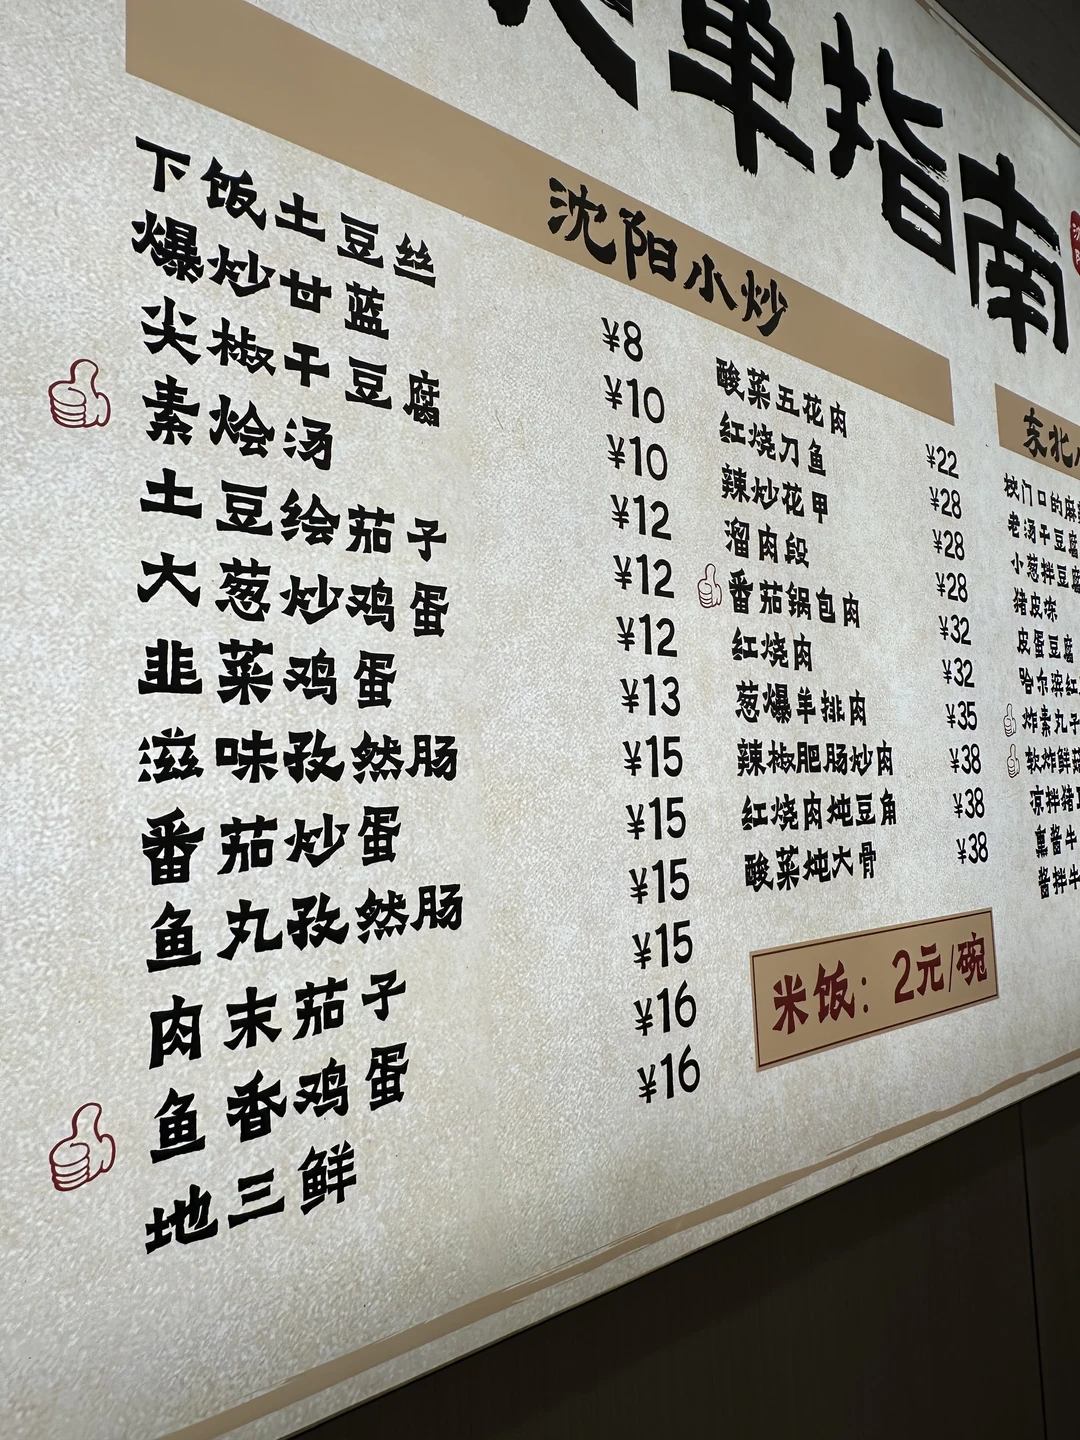 单指南
沈阳小炒
下饭土豆丝 ¥8
爆炒甘蓝 ¥10
尖椒干豆腐 ¥10
素烩汤 ¥12
土豆绘茄子 ¥12
大葱炒鸡蛋 ¥12
韭菜鸡蛋 ¥13
滋味孜然肠 ¥15
番茄炒蛋 ¥15
鱼丸孜然肠 ¥15
肉末茄子 ¥15
鱼香鸡蛋 ¥16
地三鲜 ¥16
酸菜五花肉 ¥22
红烧刀鱼 ¥28
辣炒花甲 ¥28
溜肉段 ¥28
番茄锅包肉 ¥32
红烧肉 ¥32
葱爆羊排肉 ¥35
辣椒肥肠炒肉 ¥38
红烧肉炖豆角 ¥38
酸菜炖大骨 ¥38
米饭：2元/碗
东北
校门口的麻
老汤干豆腐
小葱拌豆腐
猪皮冻
皮蛋豆腐
哈尔滨红
炸素丸子
软炸鲜菇
凉拌猪
熏酱牛
酱拌牛